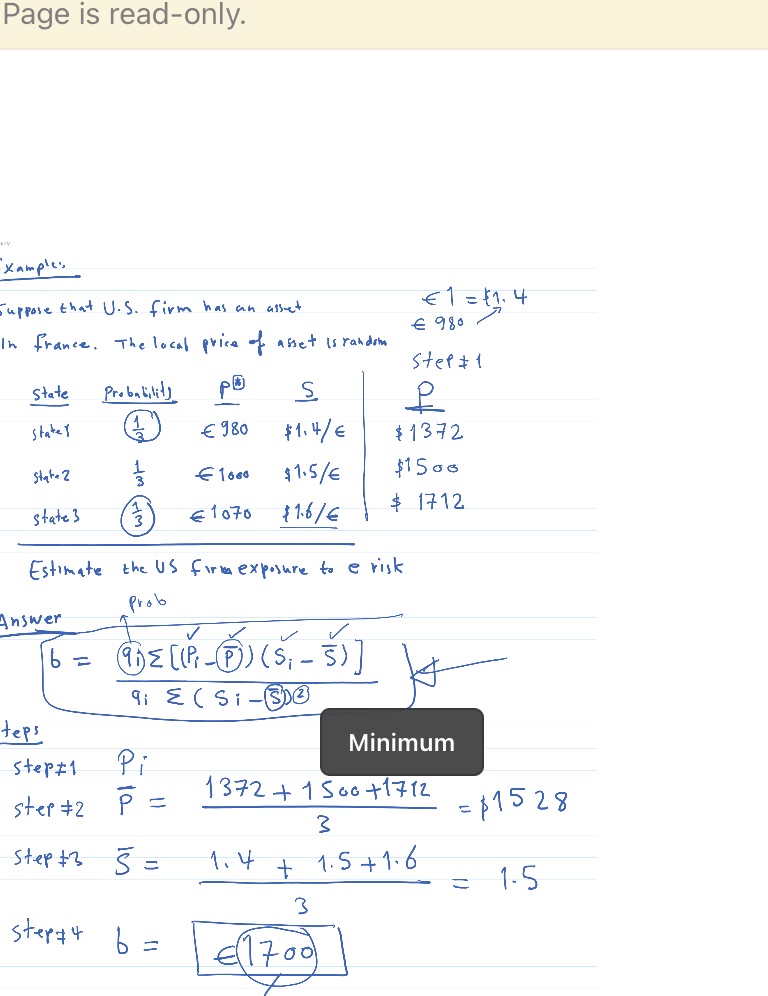 Page is read-only.
Example:
Suppose that U.S. firm has an asset
In France. The local price of asset is random
€1 = $1.4
€ 980
Step #1
State Probability P* S P
State 1 1/3 €980 $1.4/€ $1372
State 2 1/3 €1000 $1.5/€ $1500
State 3 1/3 €1070 $1.6/€ $1712
Estimate the US firm exposure to e risk
Prob
Answer
b = qi Σ [(Pi - P̄) (Si - S̄)] / qi Σ (Si - S̄)²
Minimum
teps
Step #1 Pi
Step #2 P̄ = 1372 + 1500 + 1712 / 3 = $1528
Step #3 S̄ = 1.4 + 1.5 + 1.6 / 3 = 1.5
Step #4 b = €1700